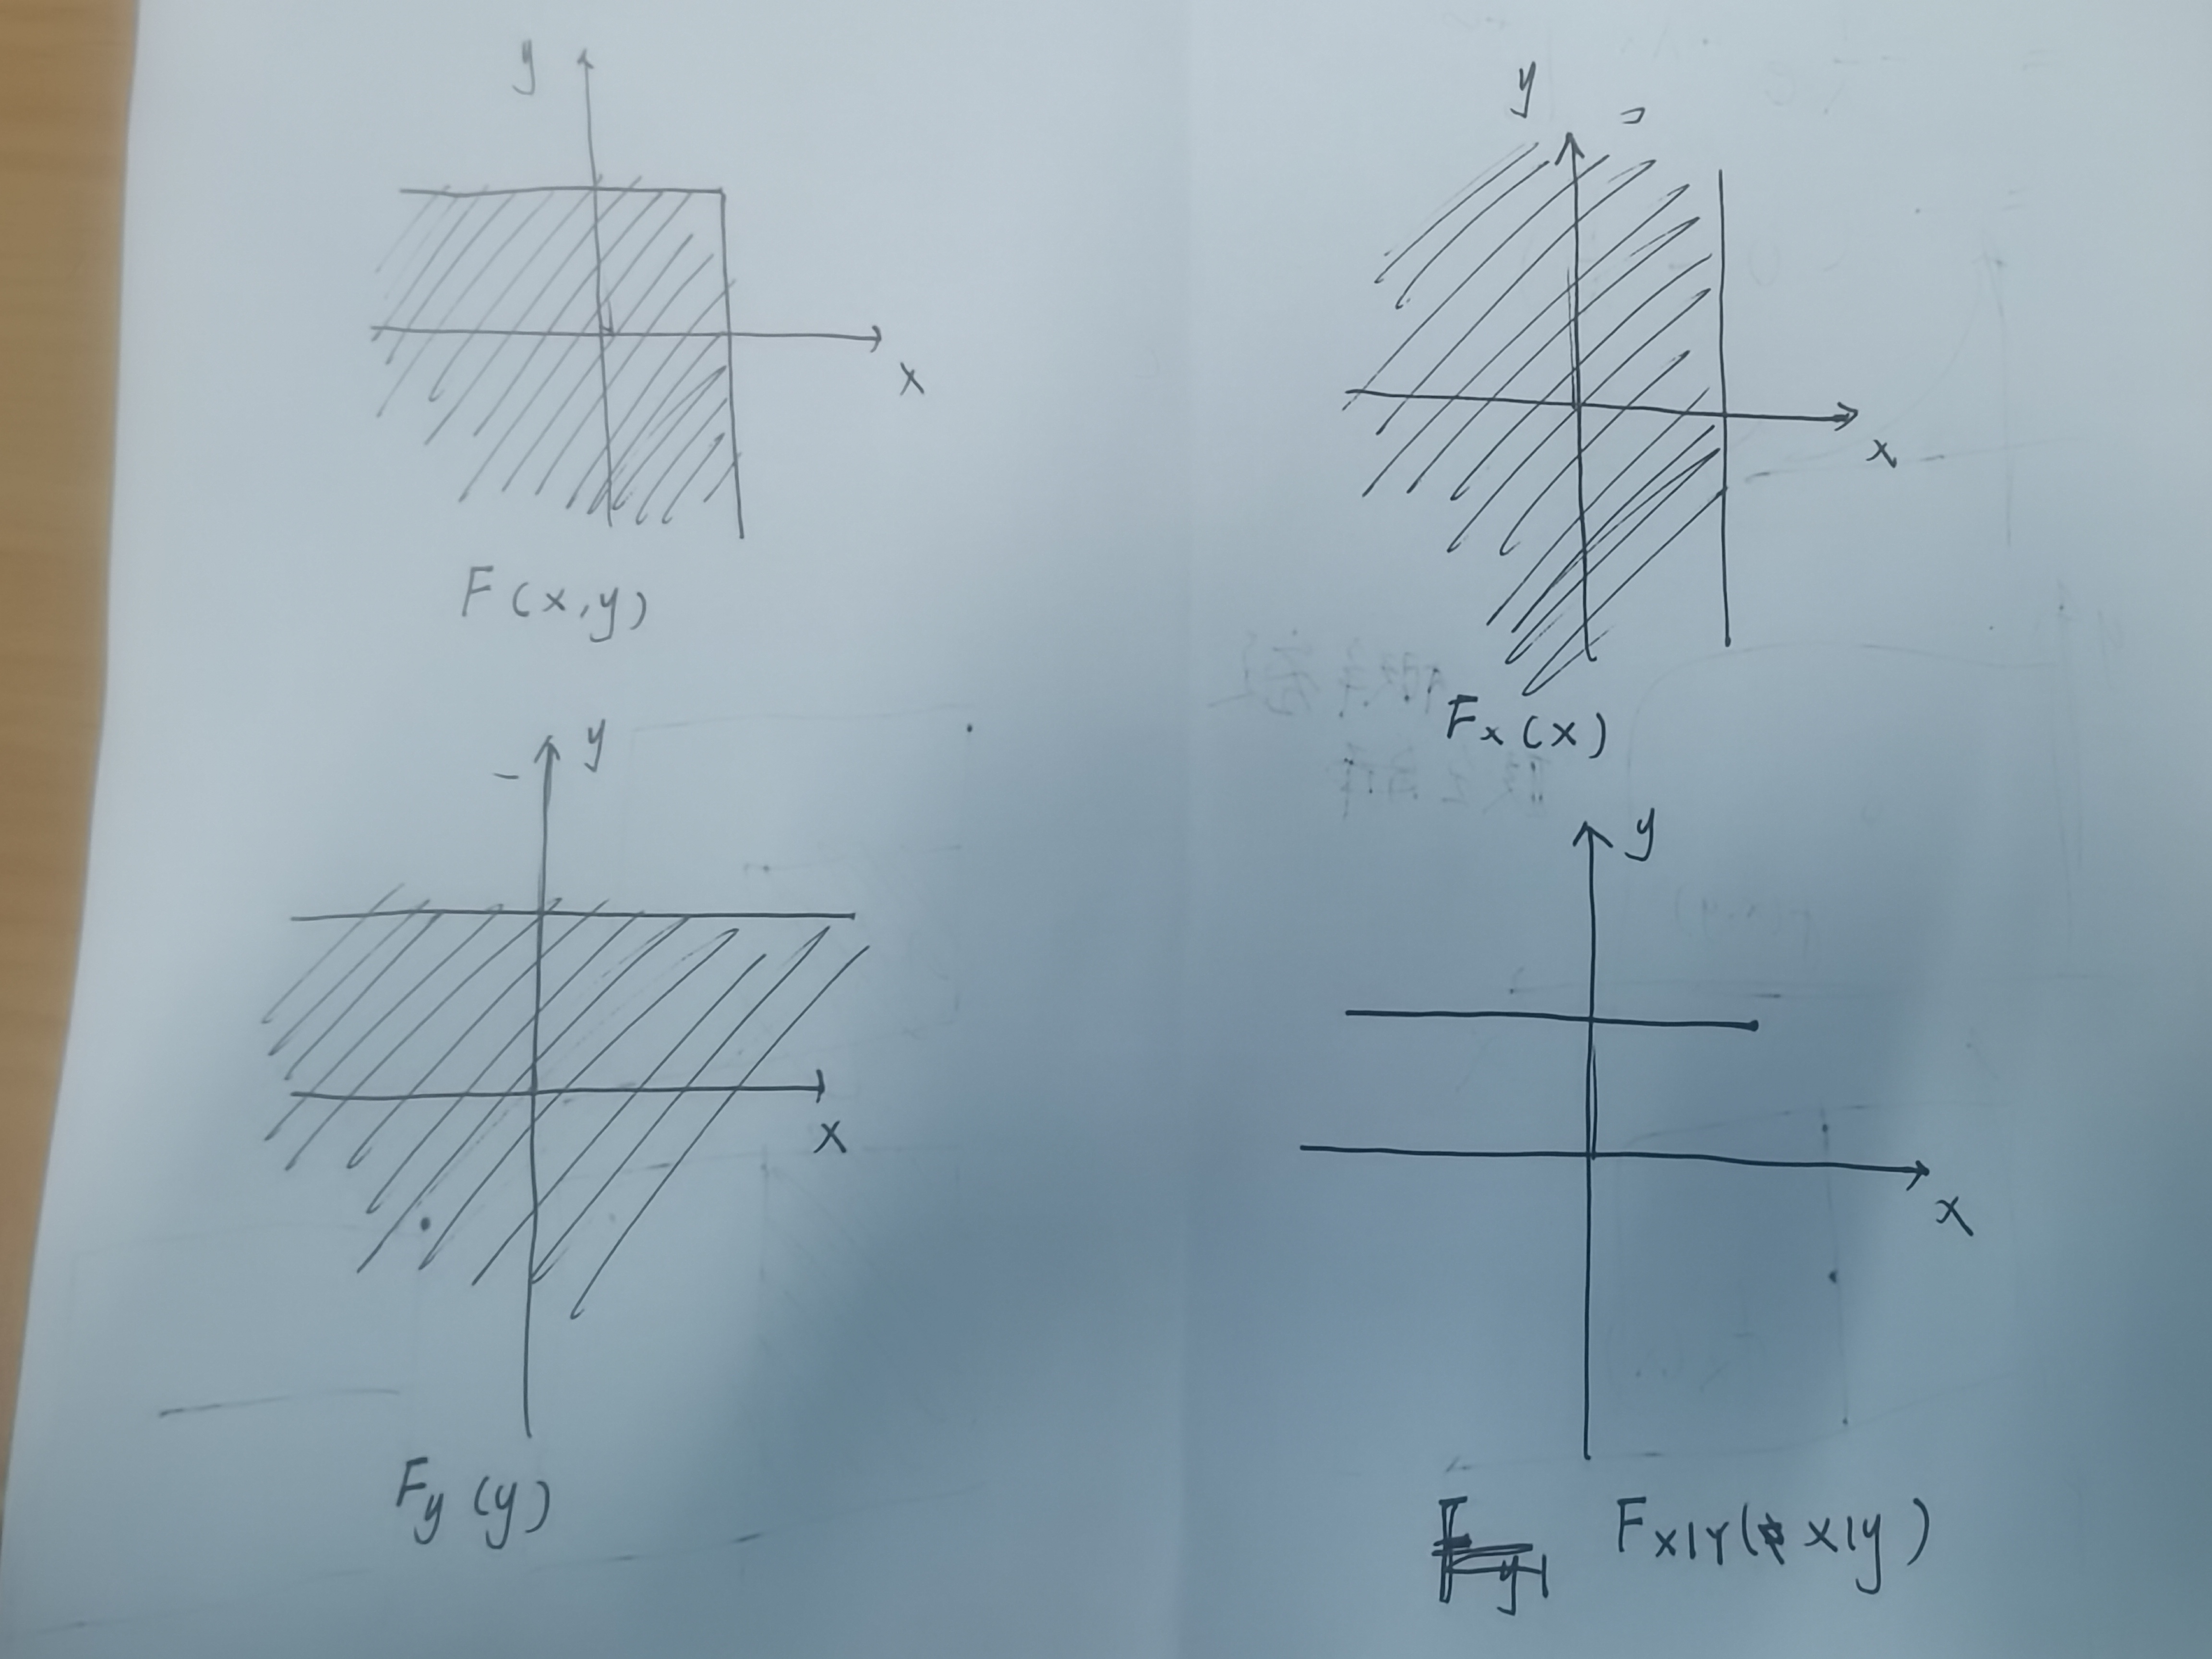 y
x
F(x,y)
y
x
Fx(x)
y
x
Fy(y)
y
x
F_{X|Y}(x|y)